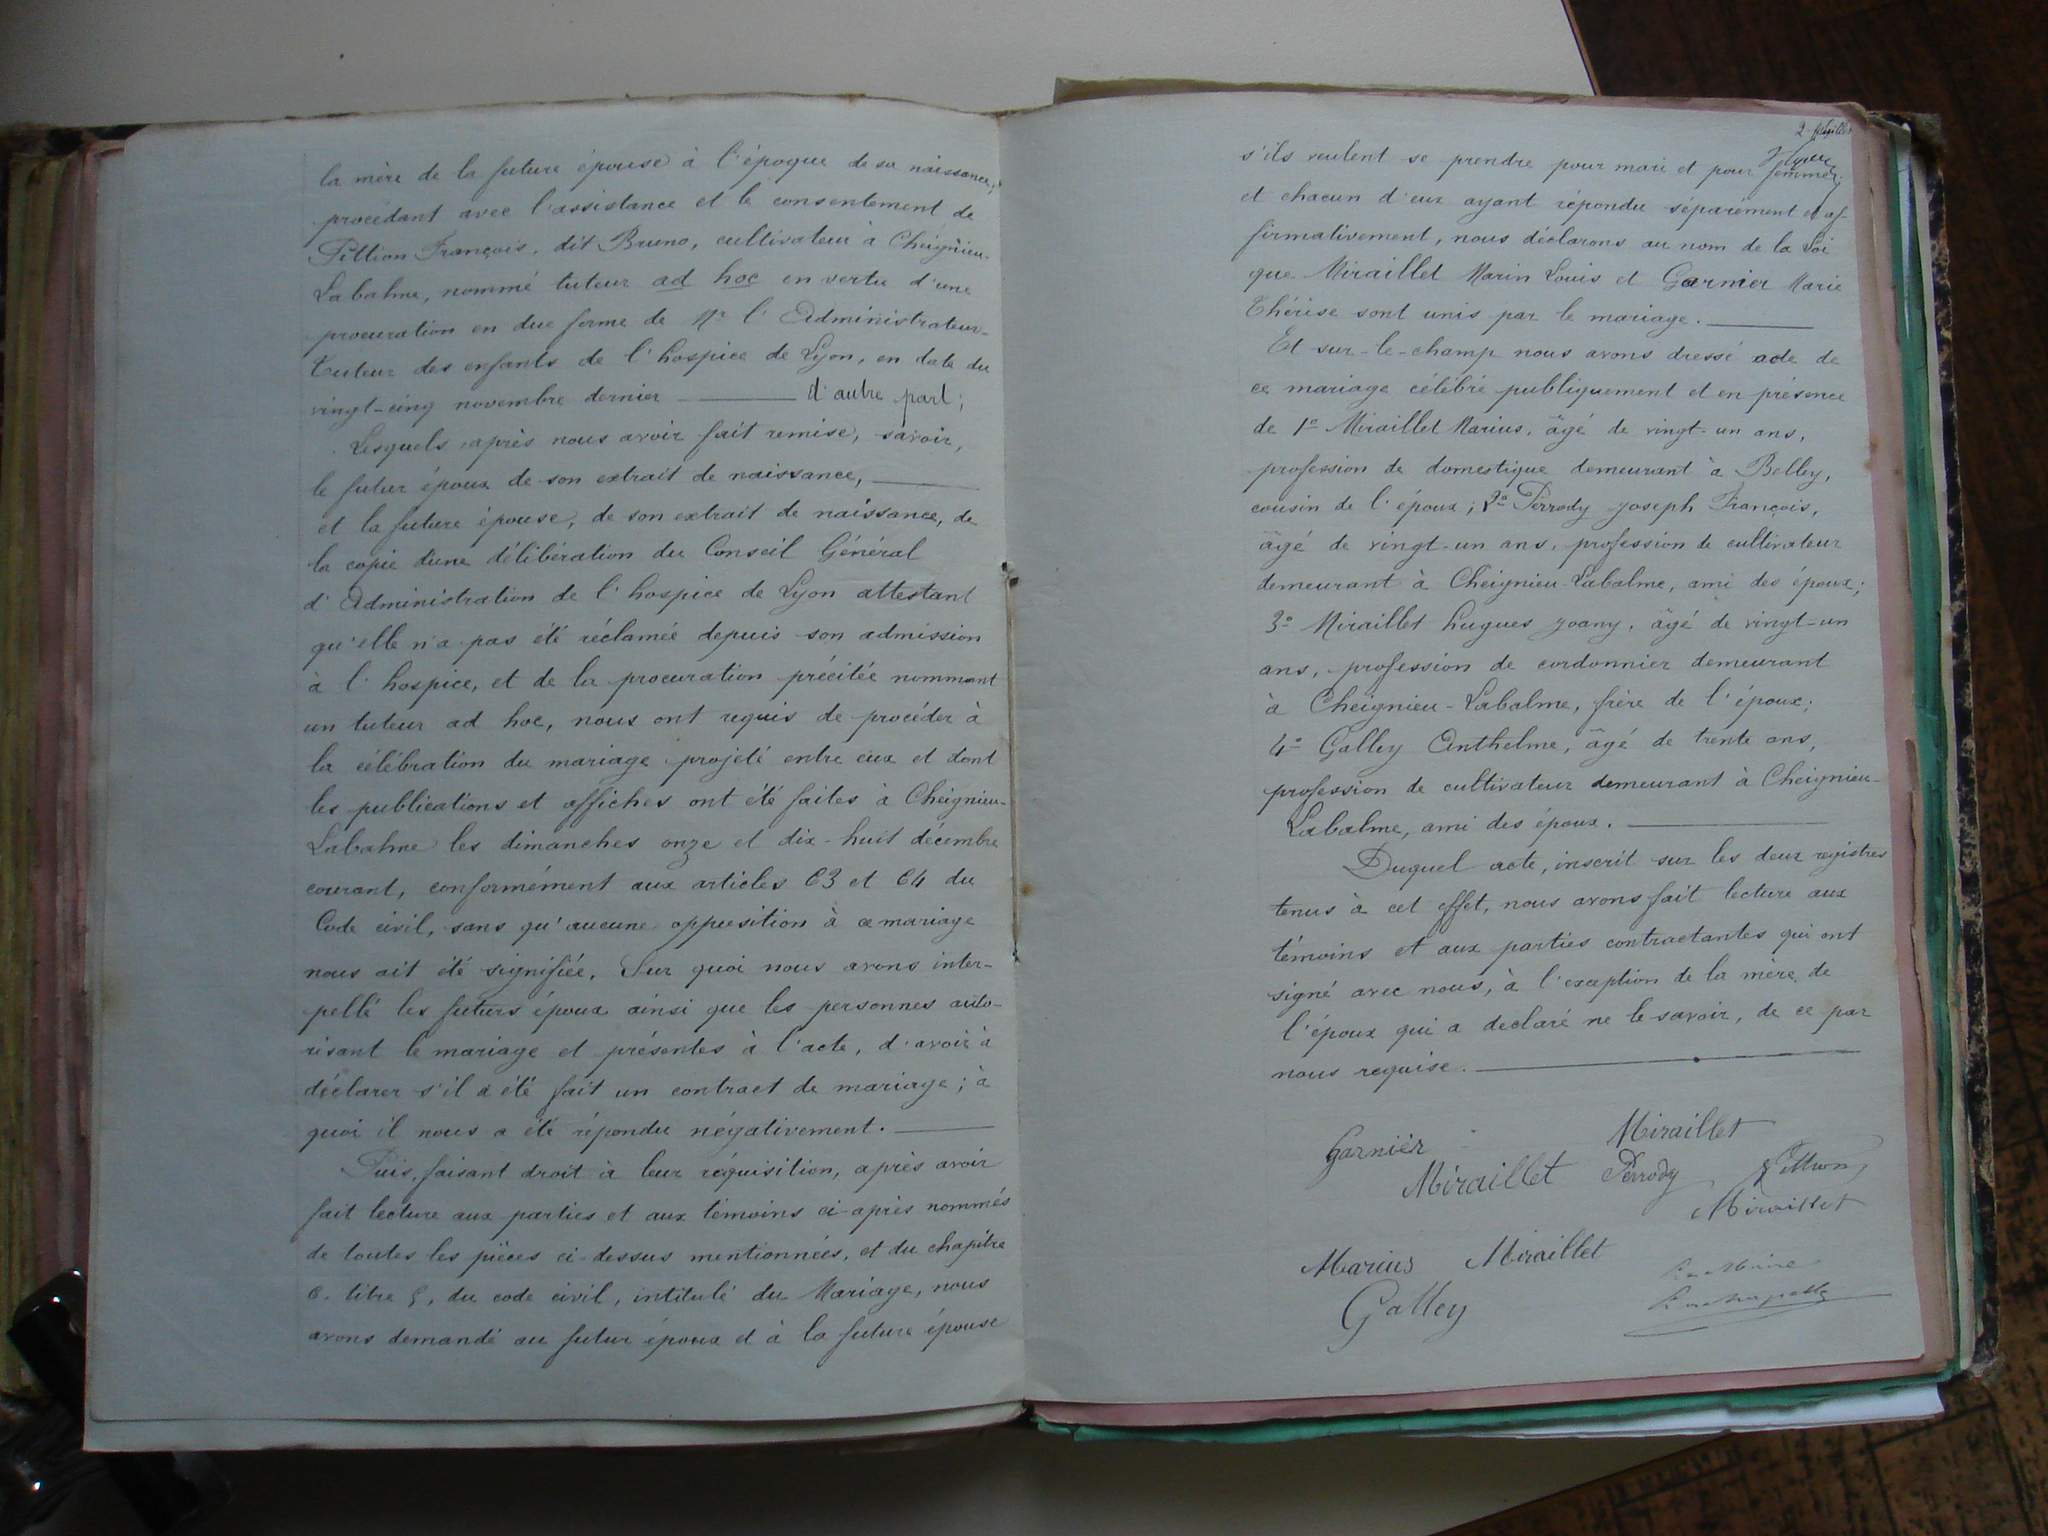 la mère de la future épouse à l'époque de sa naissance,
procédant avec l'assistance et le consentement de
Pittion François, dit Bruno, cultivateur à Cheignieu-
Labalme, nommé tuteur ad hoc en vertu d'une
procuration en due forme de Mr l'Administrateur-
Tuteur des enfants de l'hospice de Lyon, en date du
vingt-cinq novembre dernier d'autre part;
Lesquels après nous avoir fait remise, savoir,
le futur époux de son extrait de naissance,
et la future épouse, de son extrait de naissance, de
la copie d'une délibération du Conseil Général
d'Administration de l'hospice de Lyon attestant
qu'elle n'a pas été réclamée depuis son admission
à l'hospice, et de la procuration précitée nommant
un tuteur ad hoc, nous ont requis de procéder à
la célébration du mariage projeté entre eux et dont
les publications et affiches ont été faites à Cheignieu-
Labalme les dimanches onze et dix-huit décembre
courant, conformément aux articles 63 et 64 du
Code civil, sans qu'aucune opposition à ce mariage
nous ait été signifiée. Sur quoi nous avons inter-
pellé les futurs époux ainsi que les personnes auto-
risant le mariage et présentes à l'acte, d'avoir à
déclarer s'il a été fait un contract de mariage; à
quoi il nous a été répondu négativement.
Puis, faisant droit à leur réquisition, après avoir
fait lecture aux parties et aux témoins ci-après nommés
de toutes les pièces ci-dessus mentionnées, et du chapitre
6. titre 5, du code civil, intitulé du Mariage, nous
avons demandé au futur époux et à la future épouse
2e feuillet
s'ils veulent se prendre pour mari et pour femme;
et chacun d'eux ayant répondu séparément et af-
firmativement, nous déclarons au nom de la Loi
que Miraillet Marin Louis et Garnier Marie
Thérèse sont unis par le mariage.
Et sur-le-champ nous avons dressé acte de
ce mariage célébré publiquement et en présence
de 1° Miraillet Marius, âgé de vingt-un ans,
profession de domestique demeurant à Belley,
cousin de l'époux; 2° Perrody Joseph François,
âgé de vingt-un ans, profession de cultivateur
demeurant à Cheignieu-Labalme, ami des époux;
3° Miraillet Hugues Joany, âgé de vingt-un
ans, profession de cordonnier demeurant
à Cheignieu-Labalme, frère de l'époux;
4° Galley Anthelme, âgé de trente ans,
profession de cultivateur demeurant à Cheignieu-
Labalme, ami des époux.
Duquel acte, inscrit sur les deux registres
tenus à cet effet, nous avons fait lecture aux
témoins et aux parties contractantes qui ont
signé avec nous, à l'exception de la mère de
l'époux qui a declaré ne le savoir, de ce par
nous requise.
Garnier Miraillet
Miraillet Perrody Pittion
Miraillet
Marius Miraillet
Galley
Le Maire